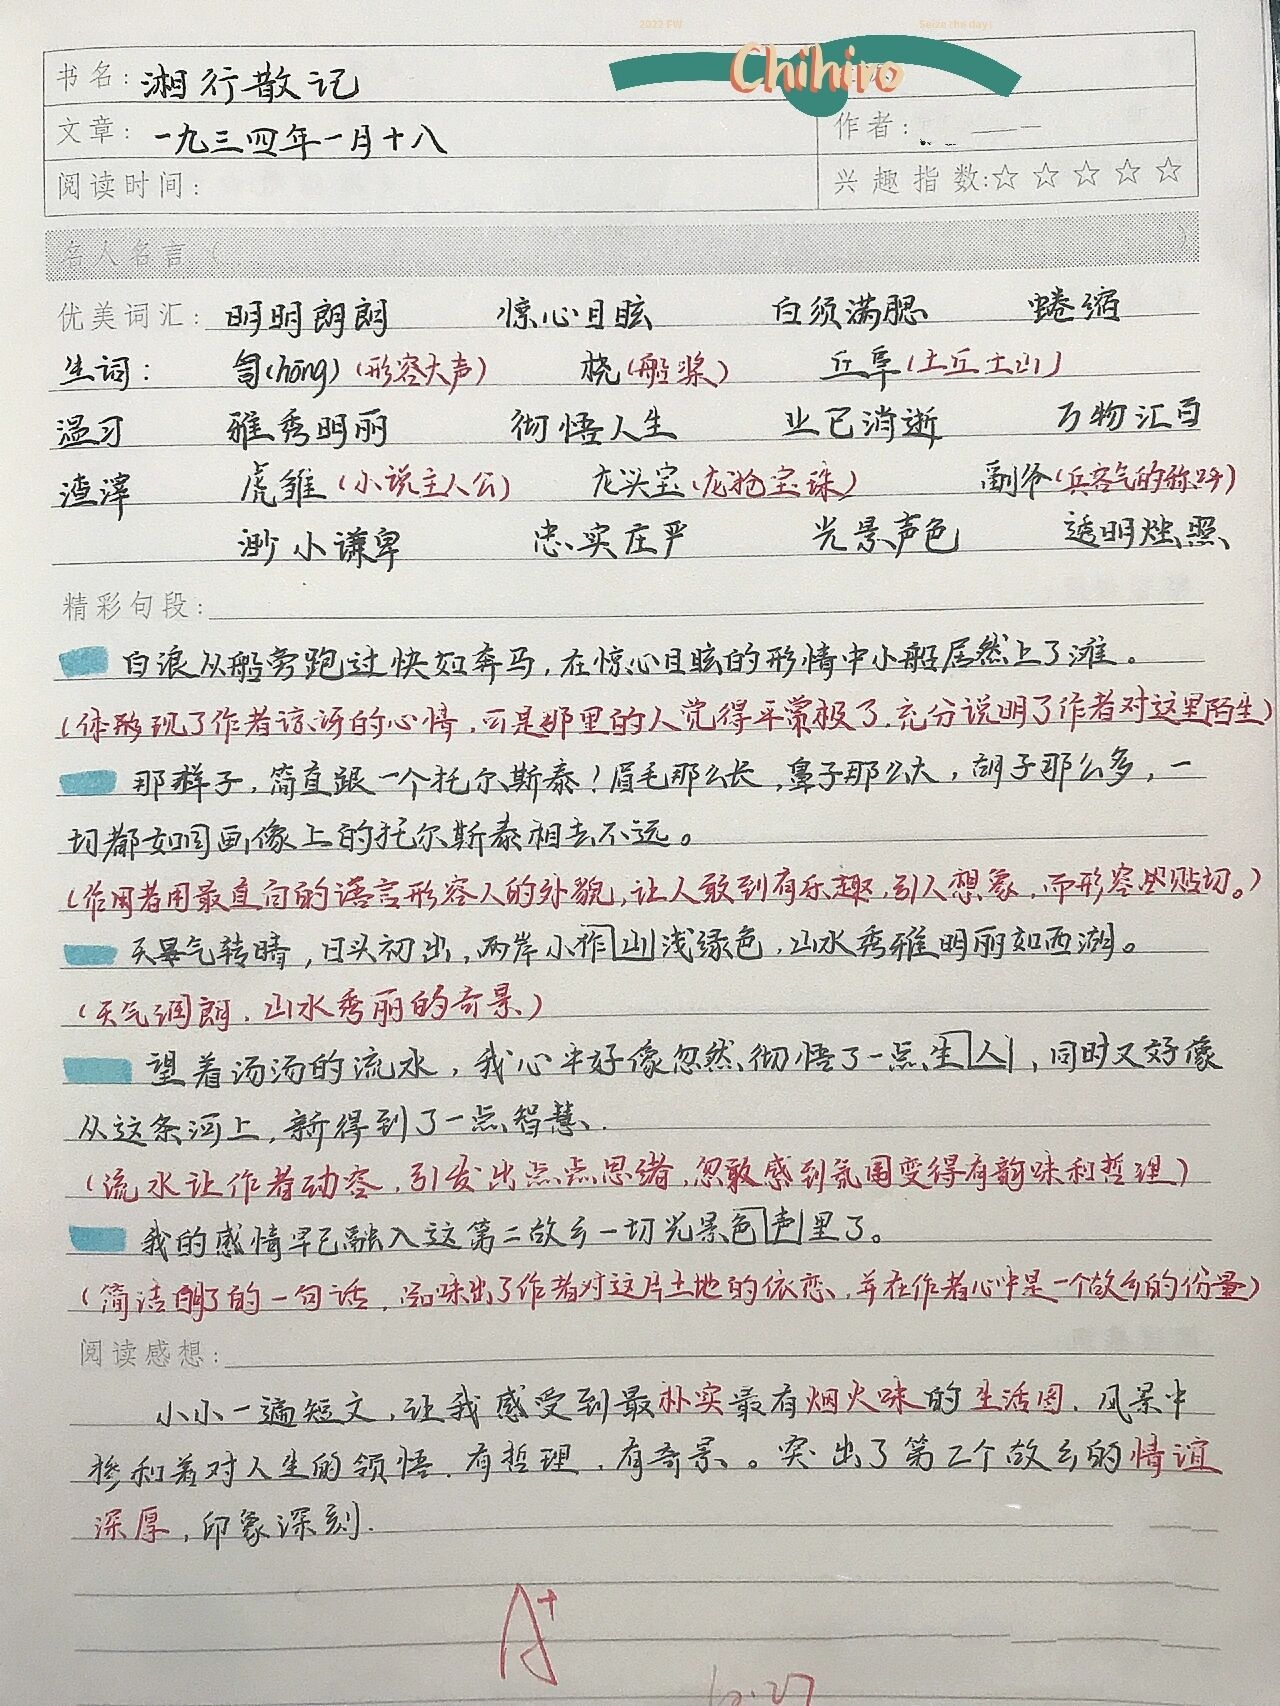 2022 FW
Seize the day!
Chihiro
书名: 湘行散记
文章: 一九三四年一月十八
作者:
阅读时间:
兴趣指数:☆☆☆☆☆
名人名言(
)
优美词汇: 明明朗朗 惊心目眩 白须满腮 蜷缩
生词: 訇(hōng)(形容大声) 桡(船桨) 丘阜(土丘土山)
温习 雅秀明丽 彻悟人生 业已消逝 万物汇百
渣滓 虎雏(小说主人公) 龙头宝(龙抢宝珠) 副爷(兵客气的称呼)
渺小谦卑 忠实庄严 光景声色 透明烛照
精彩句段:
白浪从船旁跑过快如奔马,在惊心目眩的形情中小船居然上了滩。
(体现了作者惊讶的心情,可是那里的人觉得平常极了.充分说明了作者对这里陌生)
那样子,简直跟一个托尔斯泰!眉毛那么长,鼻子那么大,胡子那么多,一
切都如同画像上的托尔斯泰相去不远。
(作用者用最直白的语言形容人的外貌,让人感到有乐趣,引人想象,而形容贴切。)
天气转晴,日头初出,两岸小山作浅绿色,山水秀雅明丽如西湖。
(天气润朗,山水秀丽的奇景)
望着汤汤的流水,我心中好像忽然彻悟了一点人生,同时又好像
从这条河上,新得到了一点智慧.
(流水让作者动容,引发出点点思绪,忽感到氛围变得有韵味和哲理)
我的感情早已融入这第二故乡一切光景声色里了。
(简洁明了的一句话,品味出了作者对这片土地的依恋,并在作者心中是一个故乡的份量)
阅读感想:
小小一遍短文,让我感受到最朴实最有烟火味的生活图,风景中
掺和着对人生的领悟.有哲理,有奇景。突出了第二个故乡的情谊
深厚,印象深刻.
A+
12.27